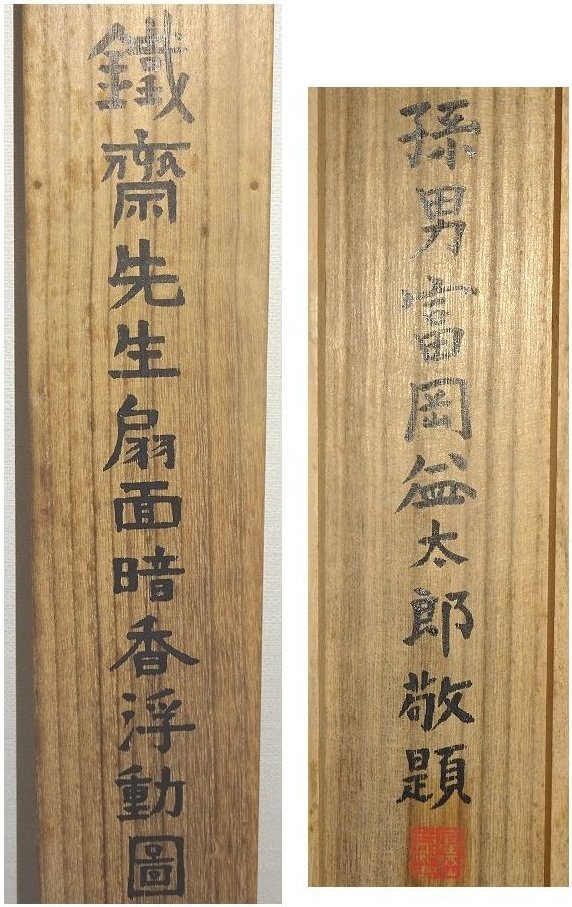 鐵齋先生扇面暗香浮動圖
孫男富岡益太郎敬題